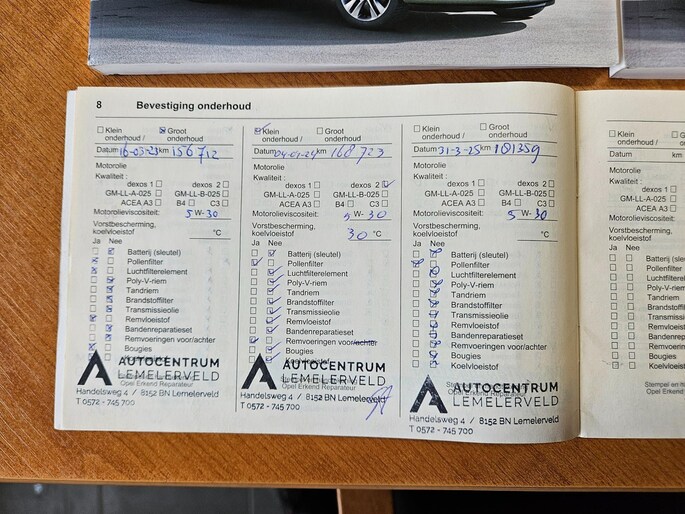 8 Bevestiging onderhoud
Klein onderhoud / Groot onderhoud
Datum 16-03-23 km 156 712
Motorolie
Kwaliteit :
dexos 1 dexos 2
GM-LL-A-025 GM-LL-B-025
ACEA A3 B4 C3
Motorolieviscositeit: 5 W- 30
Vorstbescherming,
koelvloeistof °C
Ja Nee
Batterij (sleutel)
Pollenfilter
Luchtfilterelement
Poly-V-riem
Tandriem
Brandstoffilter
Transmissieolie
Remvloeistof
Bandenreparatieset
Remvoeringen voor/achter
Bougies
AUTOCENTRUM
LEMELERVELD
Opel Erkend Reparateur
Handelsweg 4 / 8152 BN Lemelerveld
T 0572 - 745 700
Klein onderhoud / Groot onderhoud
Datum 04-01-24 km 168 723
Motorolie
Kwaliteit :
dexos 1 dexos 2
GM-LL-A-025 GM-LL-B-025
ACEA A3 B4 C3
Motorolieviscositeit: 5 W- 30
Vorstbescherming,
koelvloeistof 30 °C
Ja Nee
Batterij (sleutel)
Pollenfilter
Luchtfilterelement
Poly-V-riem
Tandriem
Brandstoffilter
Transmissieolie
Remvloeistof
Bandenreparatieset
Remvoeringen voor/achter
Bougies
AUTOCENTRUM
LEMELERVELD
Opel Erkend Reparateur
Handelsweg 4 / 8152 BN Lemelerveld
T 0572 - 745 700
Klein onderhoud / Groot onderhoud
Datum 31-3-25 km 181359
Motorolie
Kwaliteit :
dexos 1 dexos 2
GM-LL-A-025 GM-LL-B-025
ACEA A3 B4 C3
Motorolieviscositeit: 5 W- 30
Vorstbescherming,
koelvloeistof °C
Ja Nee
Batterij (sleutel)
Pollenfilter
Luchtfilterelement
Poly-V-riem
Tandriem
Brandstoffilter
Transmissieolie
Remvloeistof
Bandenreparatieset
Remvoeringen voor/achter
Bougies
Koelvloeistof
AUTOCENTRUM
LEMELERVELD
Opel Erkend Reparateur
Handelsweg 4 / 8152 BN Lemelerveld
T 0572 - 745 700
Klein onderhoud / Groot onderhoud
Datum km
Motorolie
Kwaliteit :
dexos 1
GM-LL-A-025
ACEA A3
Motorolieviscositeit:
Vorstbescherming,
koelvloeistof
Ja Nee
Batterij (sleutel)
Pollenfilter
Luchtfilterelement
Poly-V-riem
Tandriem
Brandstoffilter
Transmissieolie
Remvloeistof
Bandenreparatieset
Remvoeringen
Bougies
Koelvloeistof
Stempel en
Opel Erkend